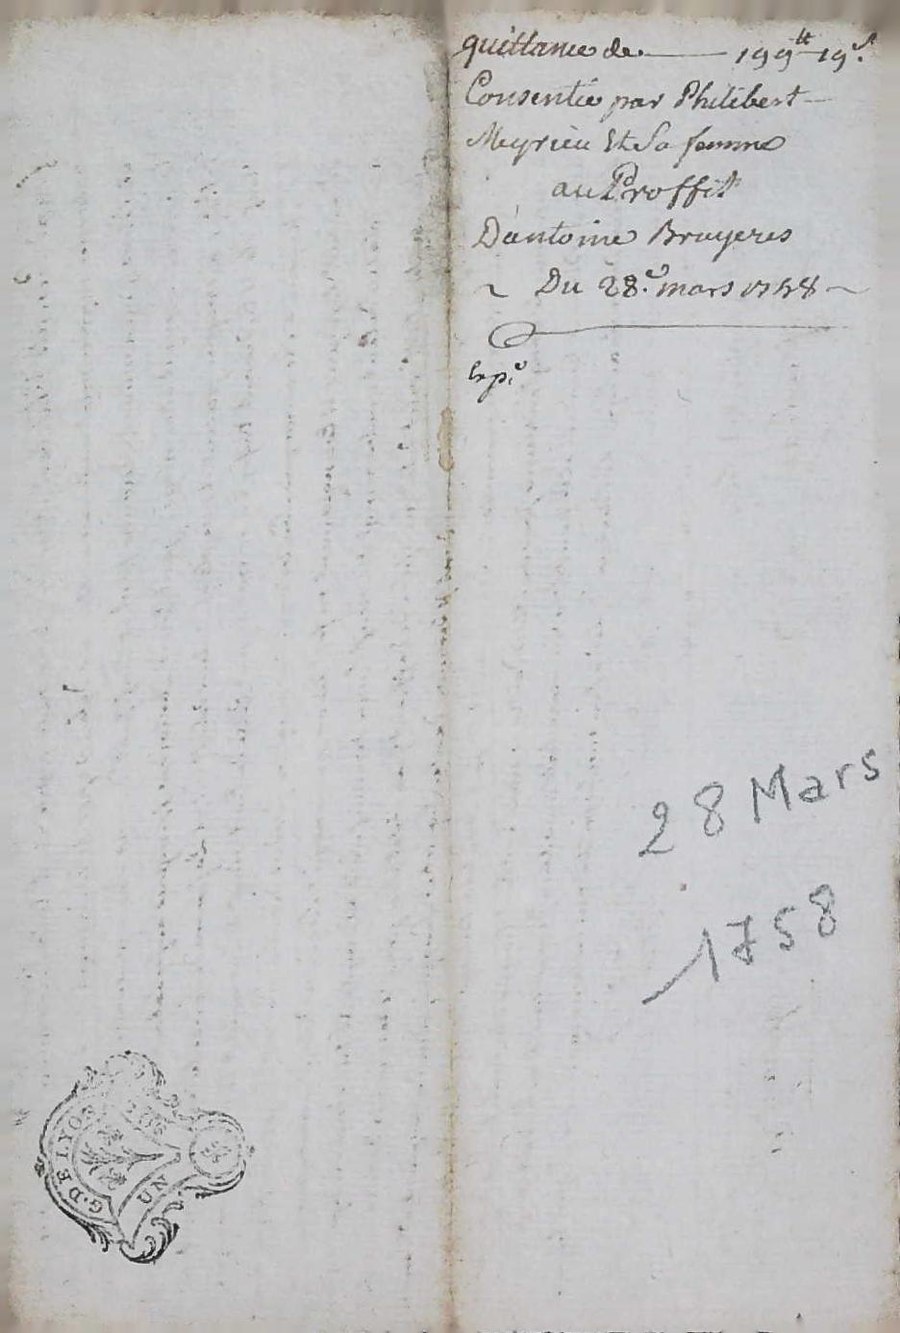 quittance de 199tt 19s.
Consentie par Philibert
Meyrieu Et Sa femme
au Proffit
D'antoine Bruyeres
Du 28.e mars 1758
Exp.e
28 Mars
1758
G. DE LYON
UN